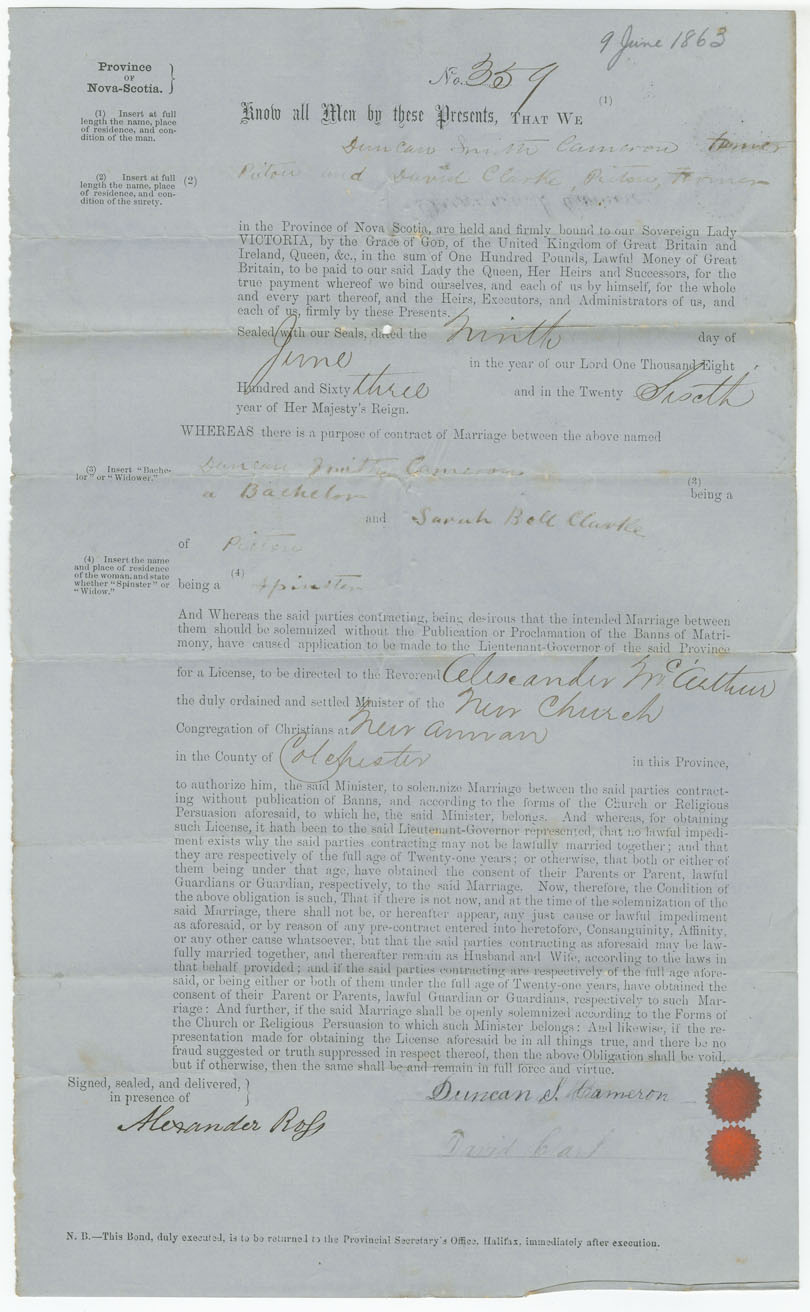 9 June 1863
Province
OF
Nova-Scotia.
No. 359
(1) Insert at full
length the name, place
of residence, and con-
dition of the man.
Know all Men by these Presents, THAT WE (1)
Duncan Smith Cameron
(2) Insert at full
length the name, place
of residence, and con-
dition of the surety.
(2) Pictou and David Clarke, Pictou,
in the Province of Nova Scotia, are held and firmly bound to our Sovereign Lady
VICTORIA, by the Grace of GOD, of the United Kingdom of Great Britain and
Ireland, Queen, &c., in the sum of One Hundred Pounds, Lawful Money of Great
Britain, to be paid to our said Lady the Queen, Her Heirs and Successors, for the
true payment whereof we bind ourselves, and each of us by himself, for the whole
and every part thereof, and the Heirs, Executors, and Administrators of us, and
each of us, firmly by these Presents.
Sealed with our Seals, dated the Ninth day of
June in the year of our Lord One Thousand Eight
Hundred and Sixty three and in the Twenty Sixth
year of Her Majesty's Reign.
WHEREAS there is a purpose of contract of Marriage between the above named
(3) Insert "Bache-
lor" or "Widower."
Duncan Smith Cameron
(3)
a Bachelor being a
and Sarah Bell Clarke
of Pictou
(4) Insert the name
and place of residence
of the woman, and state
whether "Spinster" or
"Widow."
being a (4) Spinster
And Whereas the said parties contracting, being desirous that the intended Marriage between
them should be solemnized without the Publication or Proclamation of the Banns of Matri-
mony, have caused application to be made to the Lieutenant-Governor of the said Province
for a License, to be directed to the Reverend Alexander McArthur
the duly ordained and settled Minister of the New Church
Congregation of Christians at New Annan
in the County of Colchester in this Province,
to authorize him, the said Minister, to solemnize Marriage between the said parties contract-
ing without publication of Banns, and according to the forms of the Church or Religious
Persuasion aforesaid, to which he, the said Minister, belongs. And whereas, for obtaining
such License, it hath been to the said Lieutenant-Governor represented, that no lawful impedi-
ment exists why the said parties contracting may not be lawfully married together; and that
they are respectively of the full age of Twenty-one years; or otherwise, that both or either of
them being under that age, have obtained the consent of their Parents or Parent, lawful
Guardians or Guardian, respectively, to the said Marriage. Now, therefore, the Condition of
the above obligation is such, That if there is not now, and at the time of the solemnization of the
said Marriage, there shall not be, or hereafter appear, any just cause or lawful impediment
as aforesaid, or by reason of any pre-contract entered into heretofore, Consanguinity, Affinity,
or any other cause whatsoever, but that the said parties contracting as aforesaid may be law-
fully married together, and thereafter remain as Husband and Wife, according to the laws in
that behalf provided; and if the said parties contracting are respectively of the full age afore-
said, or being either or both of them under the full age of Twenty-one years, have obtained the
consent of their Parent or Parents, lawful Guardian or Guardians, respectively to such Mar-
riage: And further, if the said Marriage shall be openly solemnized according to the Forms of
the Church or Religious Persuasion to which such Minister belongs: And likewise, if the re-
presentation made for obtaining the License aforesaid be in all things true, and there be no
fraud suggested or truth suppressed in respect thereof, then the above Obligation shall be void,
but if otherwise, then the same shall be and remain in full force and virtue.
Signed, sealed, and delivered,
in presence of
Duncan S. Cameron
Alexander Ross
David
N. B.—This Bond, duly executed, is to be returned to the Provincial Secretary's Office, Halifax, immediately after execution.